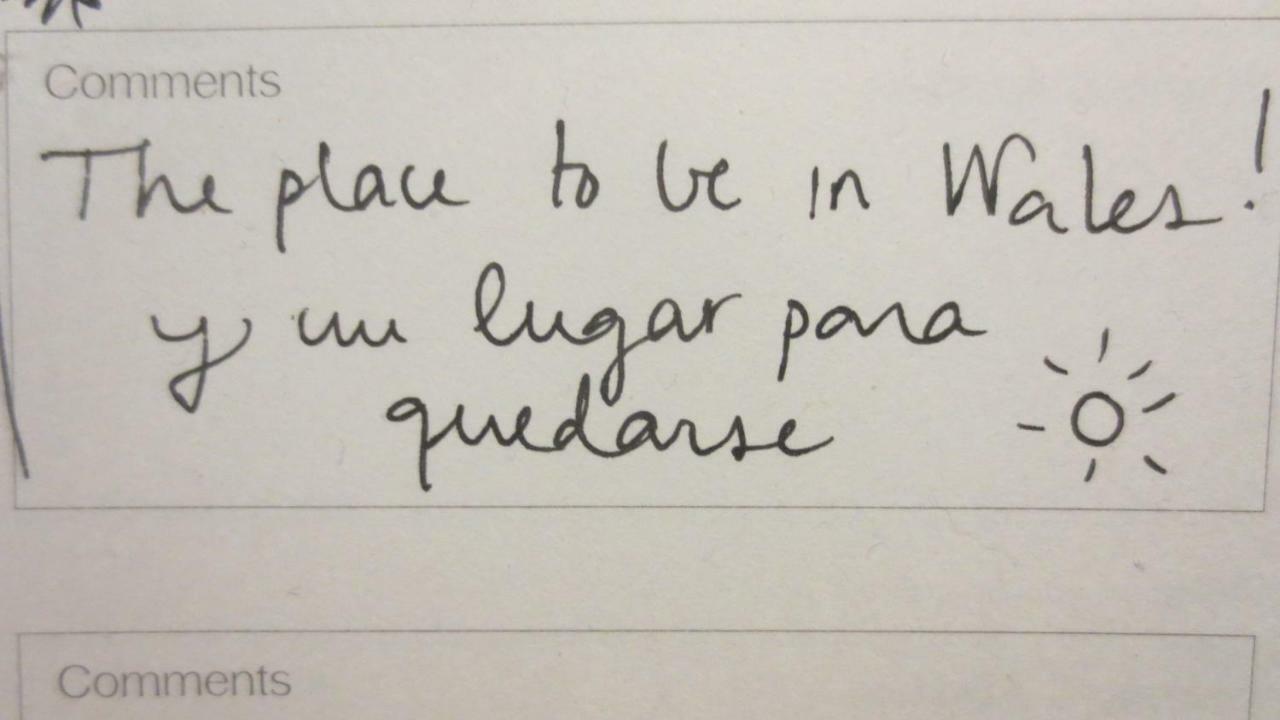 Comments
The place to be in Wales!
y un lugar para
quedarse
Comments